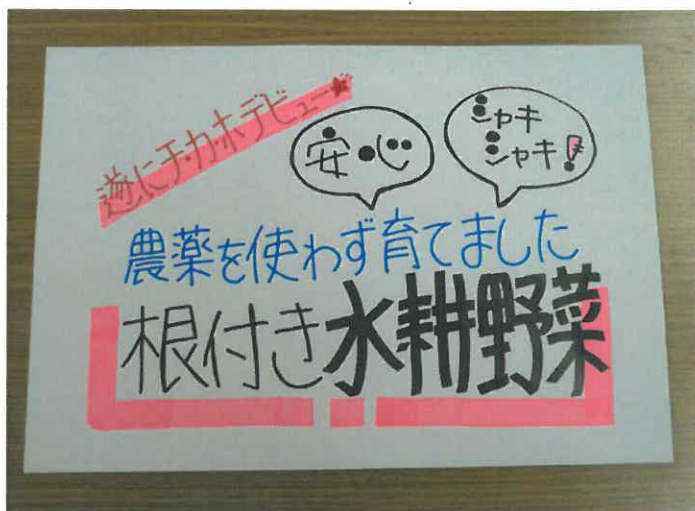 遂にチ・カ・ホデビュー★
安心
シャキ
シャキ!
農薬を使わず育てました
根付き水耕野菜